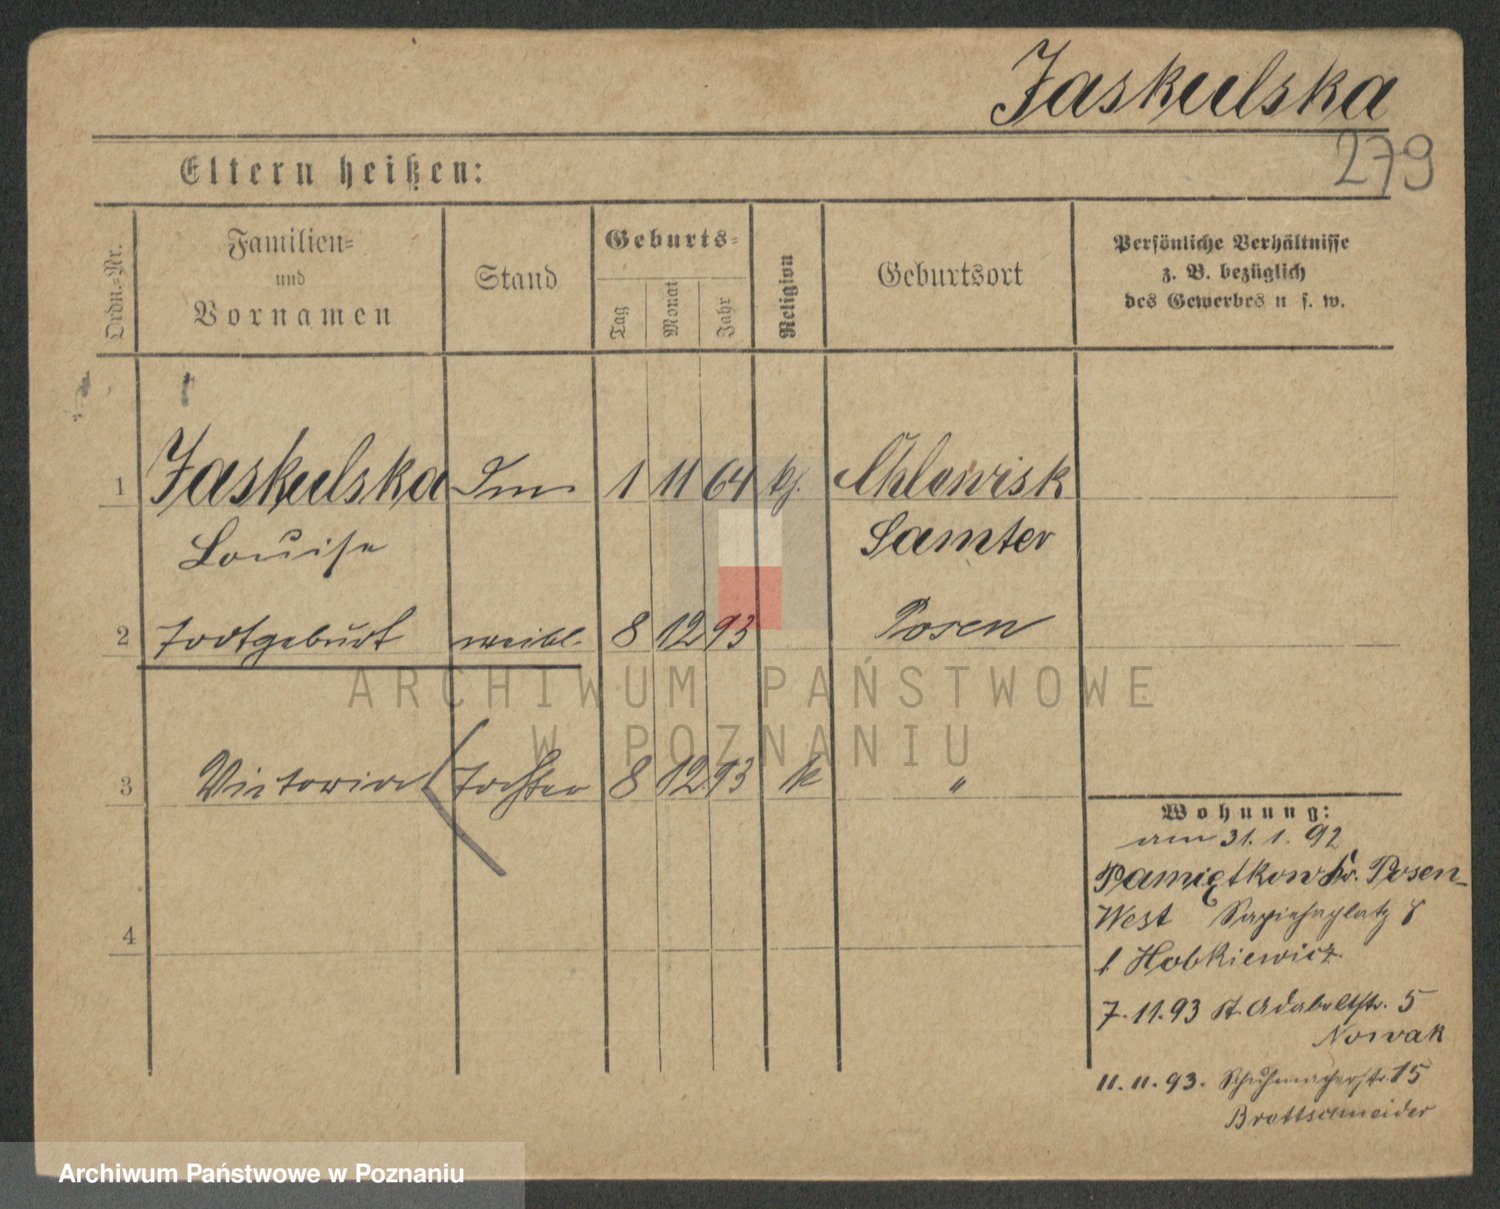 Jaskulska
279
Eltern heißen:
Ordn.-Nr.
Familien-
und
Vornamen
Stand
Geburts-
Tag
Monat
Jahr
Religion
Geburtsort
Persönliche Verhältnisse
z. B. bezüglich
des Gewerbes u. s. w.
1 Jaskulska 1 11 64 kf. Chlewisk
Louise Samter
2 Todtgeburt weibl. 8 12 93 Posen
3 Victoria Tochter 8 12 93 k "
4
Wohnung:
am 31. 1. 92
Pamiątkowo Kr. Posen-
West Sapiehaplatz 8
b. Hobkiewicz.
7.11.93 St. Adalbertstr. 5
Nowak
11.11.93. Schuhmacherstr. 15
Brottschneider
ARCHIWUM PAŃSTWOWE
W POZNANIU
Archiwum Państwowe w Poznaniu